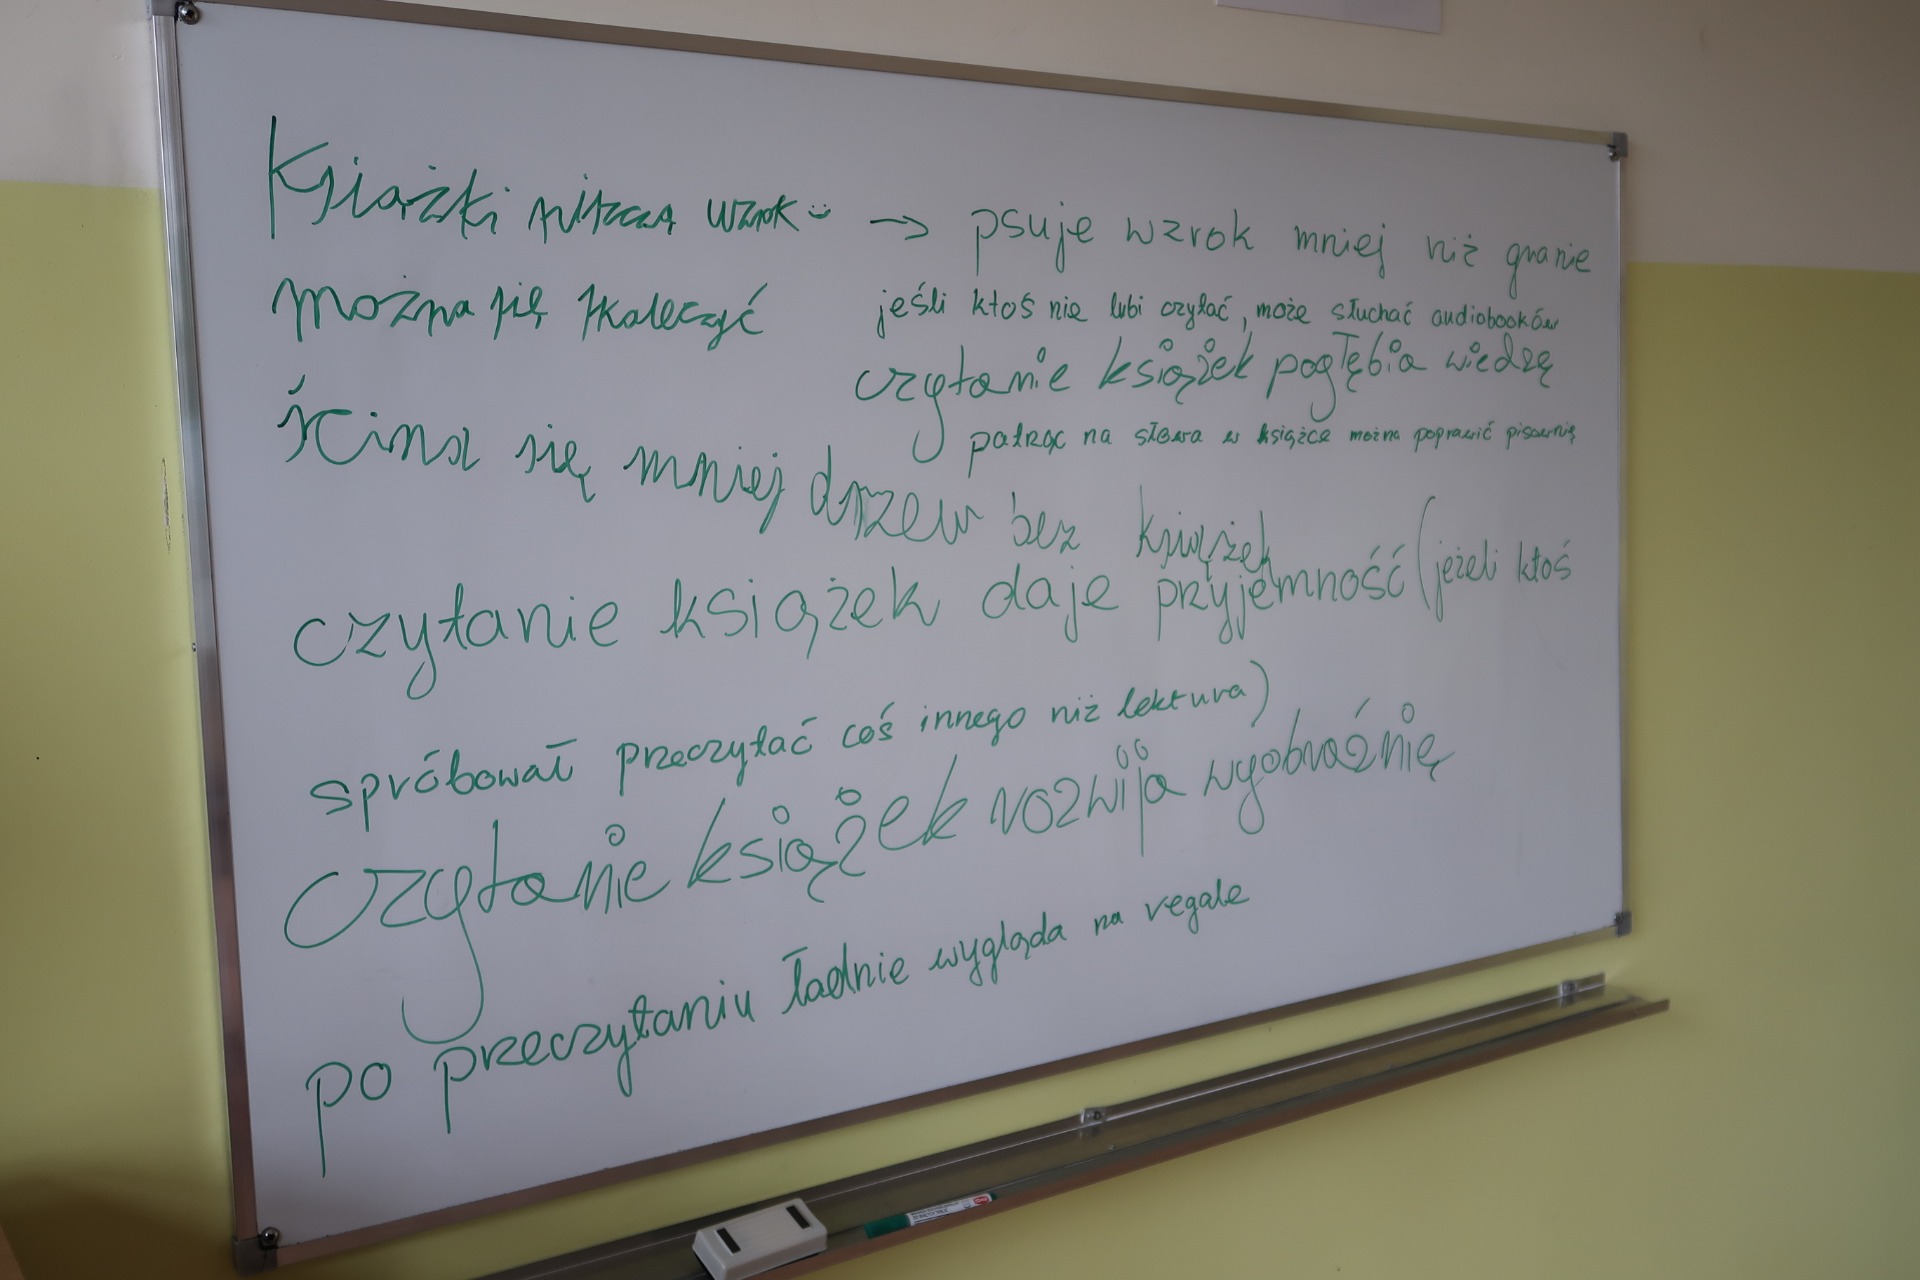 Książki niszczą wzrok → psuje wzrok mniej niż granie
można się skaleczyć
jeśli ktoś nie lubi czytać, może słuchać audiobooków
czytanie książek pogłębia wiedzę
patrząc na słowa w książce można poprawić pisownię
Ścina się mniej drzew bez książek
czytanie książek daje przyjemność (jeżeli ktoś
spróbował przeczytać coś innego niż lektura)
czytanie książek rozwija wyobraźnię
po przeczytaniu ładnie wygląda na regale